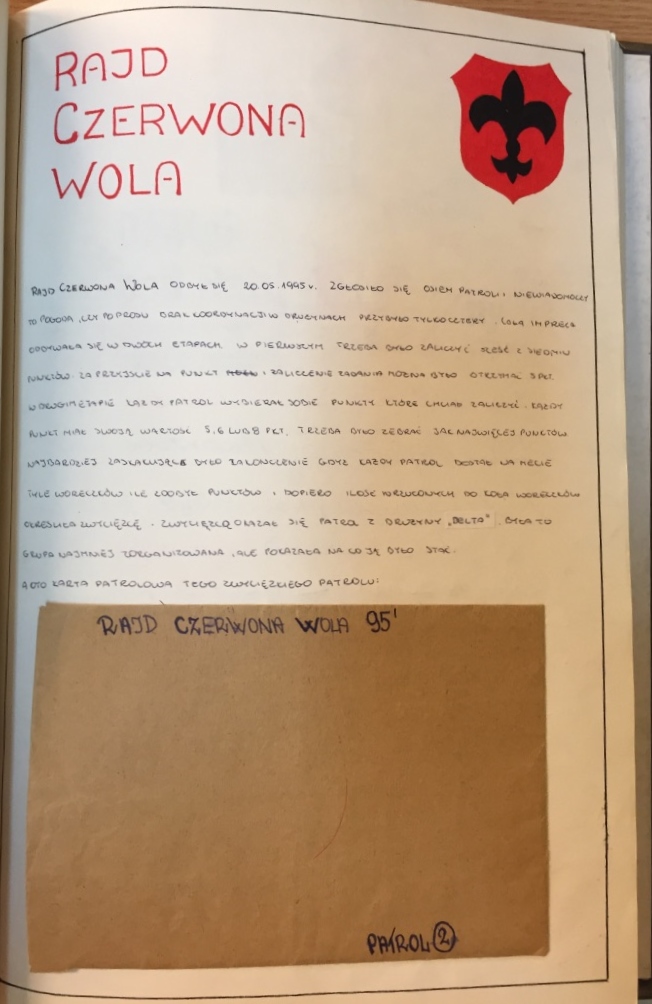 RAJD
CZERWONA
WOLA
RAJD CZERWONA WOLA ODBYŁ SIĘ 20.05.1995r. ZGŁOSIŁO SIĘ OSIEM PATROLI NIEWIADOMO CZY
TO POGODA, CZY PO PROSTU BRAK KOORDYNACJI W DRUŻYNACH PRZYBYŁO TYLKO CZTERY. CAŁA IMPREZA
ODBYWAŁA SIĘ W DWÓCH ETAPACH. W PIERWSZYM TRZEBA BYŁO ZALICZYĆ SZEŚĆ Z SIEDMIU
PUNKTÓW. ZA PRZYJŚCIE NA PUNKT I ZALICZENIE ZADANIA MOŻNA BYŁO OTRZYMAĆ 5 PKT.
W DRUGIM ETAPIE KAŻDY PATROL WYBIERAŁ SOBIE PUNKTY KTÓRE CHCIAŁ ZALICZYĆ. KAŻDY
PUNKT MIAŁ SWOJĄ WARTOŚĆ 5, 6 LUB 8 PKT. TRZEBA BYŁO ZEBRAĆ JAK NAJWIĘCEJ PUNKTÓW
NAJBARDZIEJ ZASKAKUJĄCE BYŁO ZAKOŃCZENIE GDYŻ KAŻDY PATROL DOSTAŁ NA MECIE
TYLE WORECZKÓW ILE ZDOBYŁ PUNKTÓW I DOPIERO ILOŚĆ WRZUCONYCH DO KOŁA WORECZKÓW
OKREŚLIŁA ZWYCIĘZCĘ. ZWYCIĘZCĄ OKAZAŁ SIĘ PATROL Z DRUŻYNY „DELTA". BYŁA TO
GRUPA NAJMNIEJ ZORGANIZOWANA, ALE POKAZAŁA NA CO JĄ BYŁO STAĆ.
A OTO KARTA PATROLOWA TEGO ZWYCIĘZKIEGO PATROLU:
RAJD CZERWONA WOLA 95'
PATROL 2